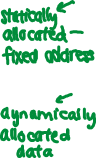 statically
allocated -
fixed address
dynamically
allocated
data